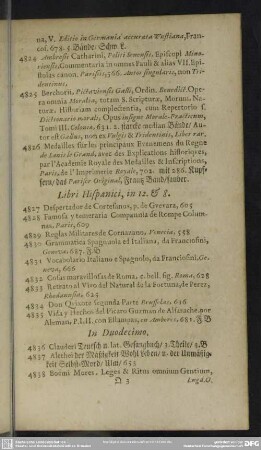 na, V. Editio in Germania accurata Wustiana, Fran-
cof. 678. 3. Bände. Schw. L.
4824 Ambrosii Catharini, Politi Senensis, Episcopi Mino-
riensis, Commentaria in omnes Pauli & alias VII. Epi-
stolas canon. Parisiis, 566. Autor singularis, non Tri-
dentinus,
4825 Berchorii, Pictaviensis Galli, Ordin. Benedict. Ope-
ra omnia Moralia, totam S. Scripturæ, Morum, Na-
turæ, Historiam complectentia, cum Repertorio s.
Dictionario morali, Opus insigne Morale-Practicum,
Tomi III. Coloniæ, 631. 2. starcke median Bände, Au-
tor est Gallus, non ex Vulgis & Tridentinis, Liber rar.
4826 Medailles sur les principaux Evenemens du Regne
de Louis le Grand, avec des Explications historiques,
par l'Academie Royale des Medailles & Inscriptions,
Paris, de l'Imprimerie Royale, 702. mit 286. Kupf-
fern, das Pariser Original, Frantz Band, sauber.
Libri Hispanici, in 12. & 8.
4827 Despertador de Cortesanos, p. de Guevara, 605
4828 Famosa y temeraria Companita de Rompe Colum-
nas, Paris, 609
4829 Reglas Militares de Cornazano, Venecia, 558
4830 Grammatica Spagnola ed Italiana, da Franciosini,
Geneva, 687. F B
4831 Vocabulario Italiano e Spagnolo, da Franciosini, Ge-
neva, 666
4832 Cosas maravillosas de Roma, c. bell. fig. Roma, 628
4833 Retratto al Vivo del Natural de la Fortuna, de Perez,
Rhodanusia, 625
4834 Don Quixote segunda Parte Brusselas, 616
4835 Vida y Hechos del Picaro Guzman de Alfarache, por
Aleman, P. I. II. con Estampas, en Amberes, 681. F B
In Duodecimo.
4836 Clauderi Teutsch u. lat. Gesangbuch, 3. Theile, 3. B
4837 Aletheii der Mäßigkeit Wohl Leben, u. der Unmäßig-
keit Selbst-Mord, Ulm, 653
4838 Boëmi Mores, Leges & Ritus omnium Gentium,
D 3 Lugd.